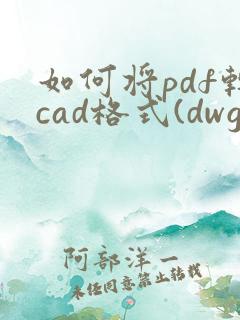 如何将pdf转
cad格式(dwg
阿部洋一
未经同意禁止转载